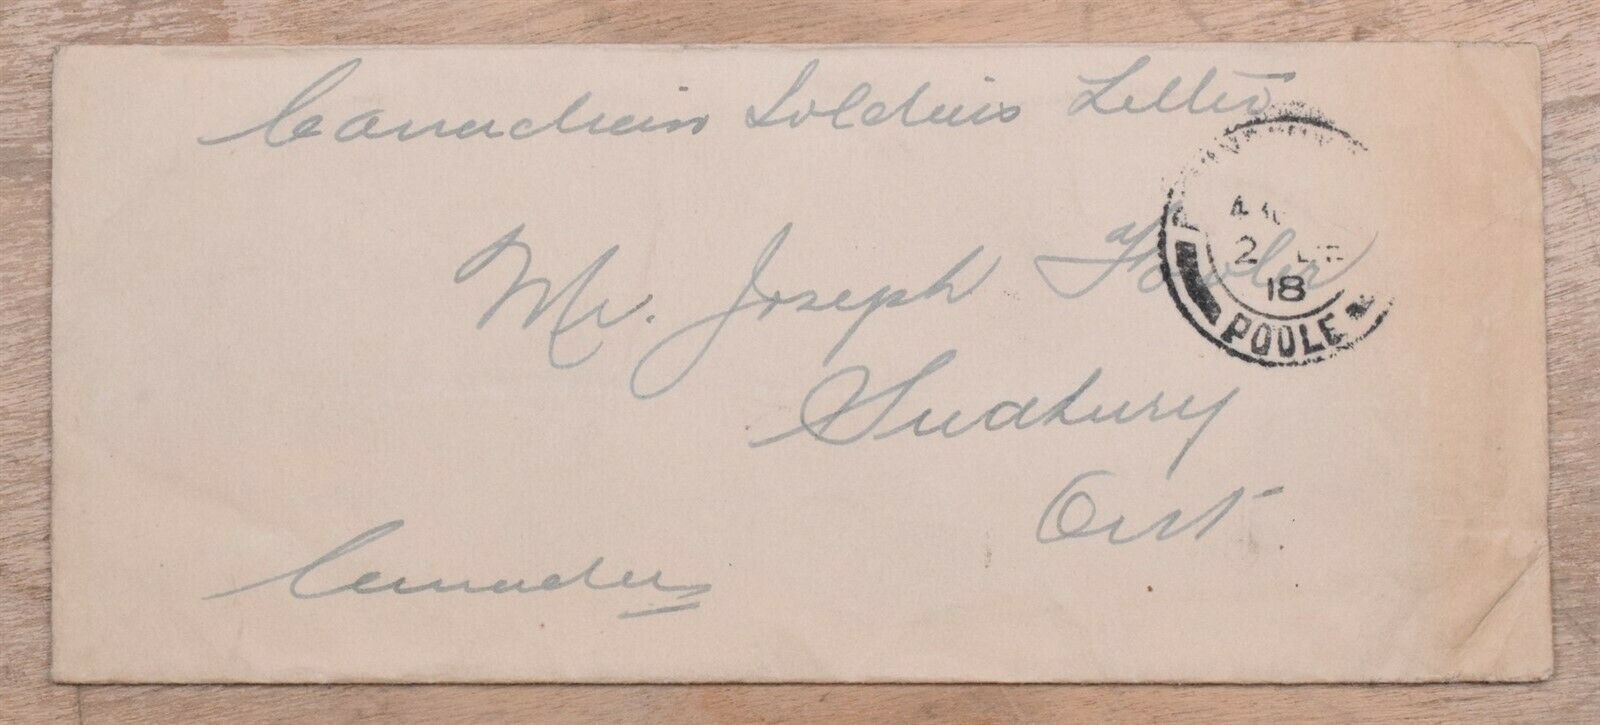 Canadian Soldiers Letter
Mr. Joseph Fowler
Sudbury
Ont
Canada
2
18
POOLE